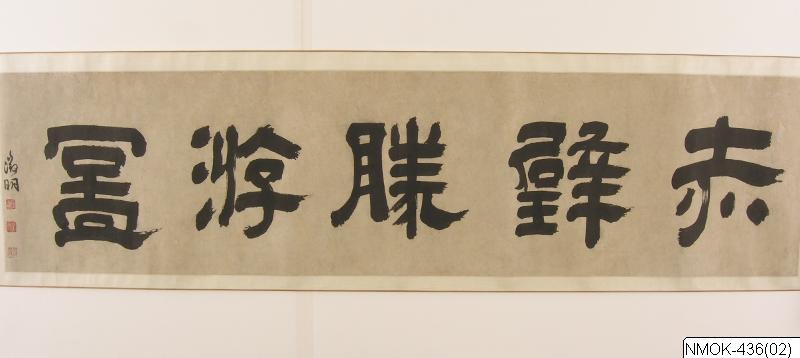 赤壁勝游圖
徵明
NMOK-436(02)